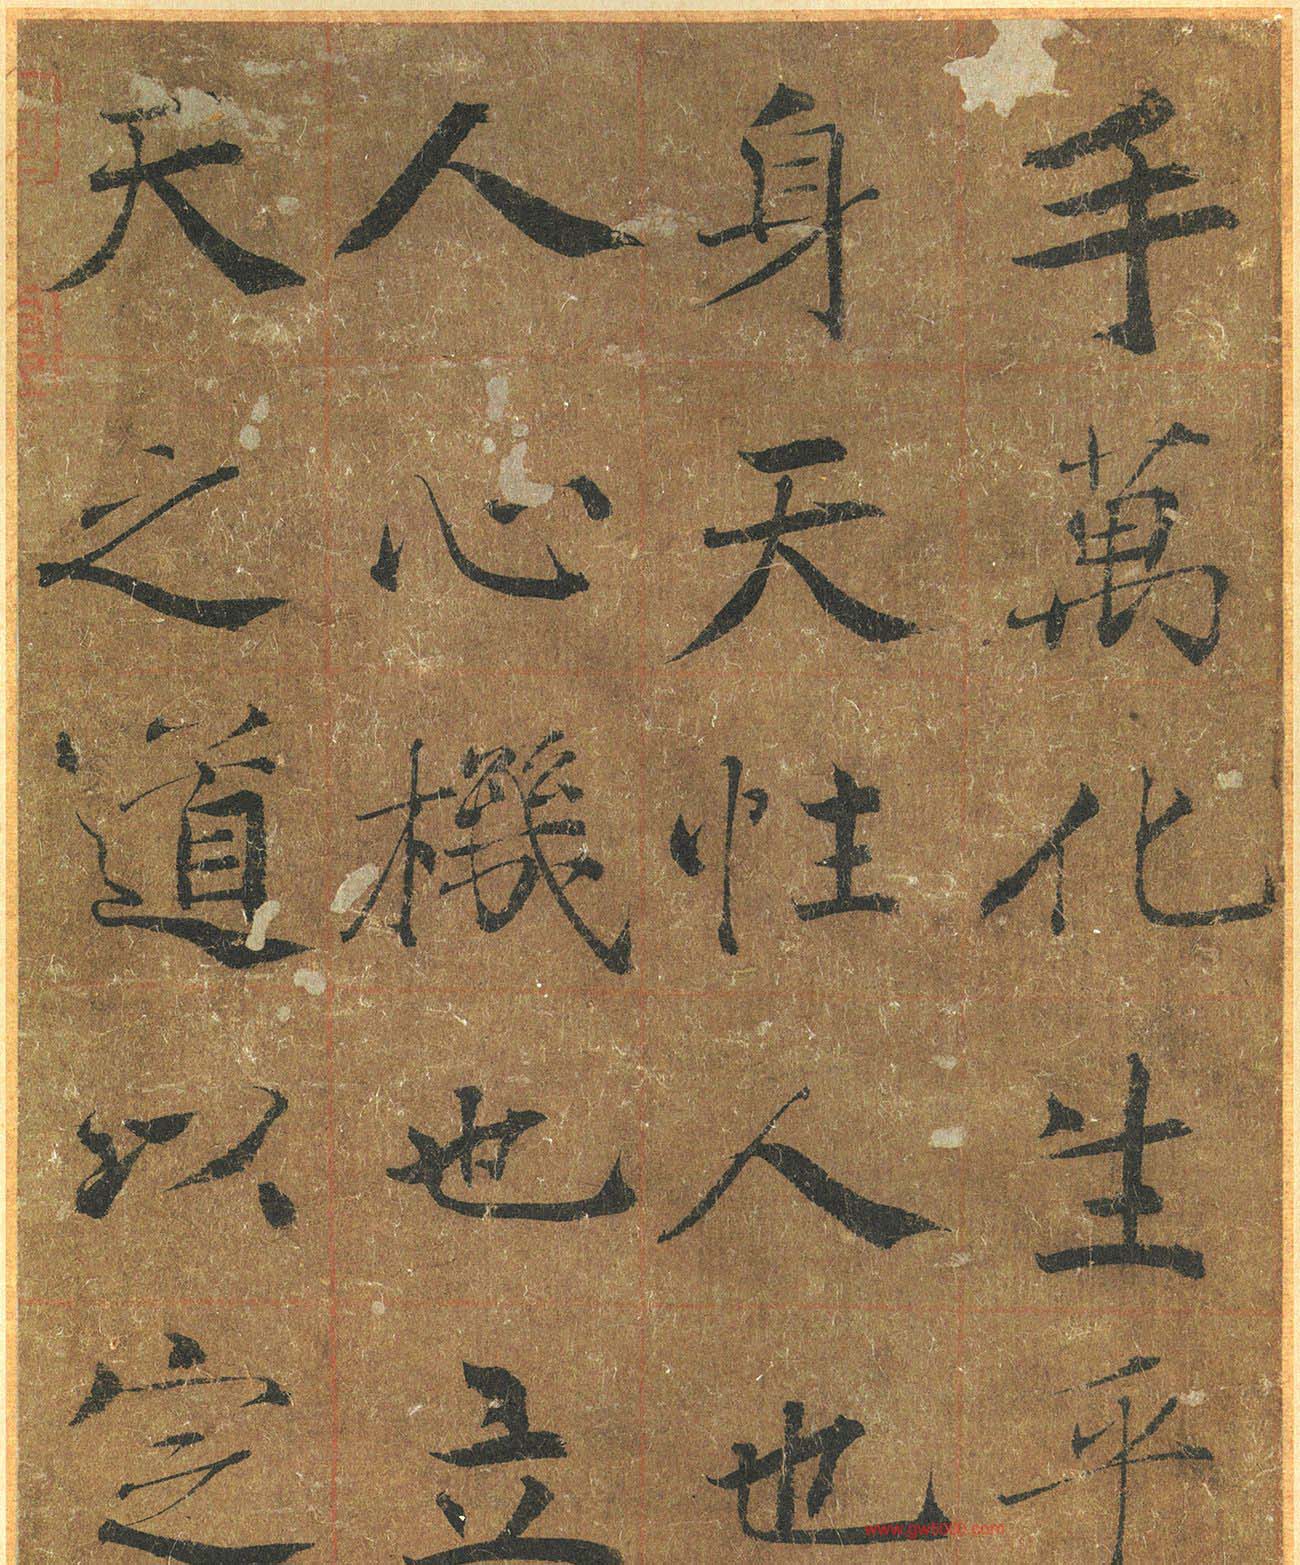 手萬化生乎
身天性人也
人心機也立
天之道以定
www.gw8000.com